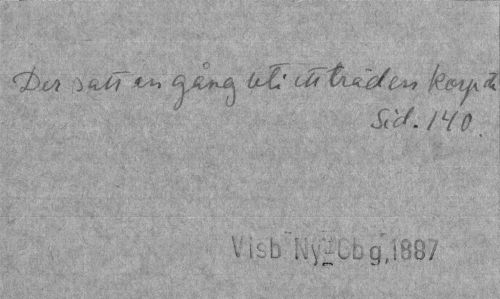 Der satt en gång uti ett träd en korp &c
Sid. 140.
Visb Ny-Obg, 1887